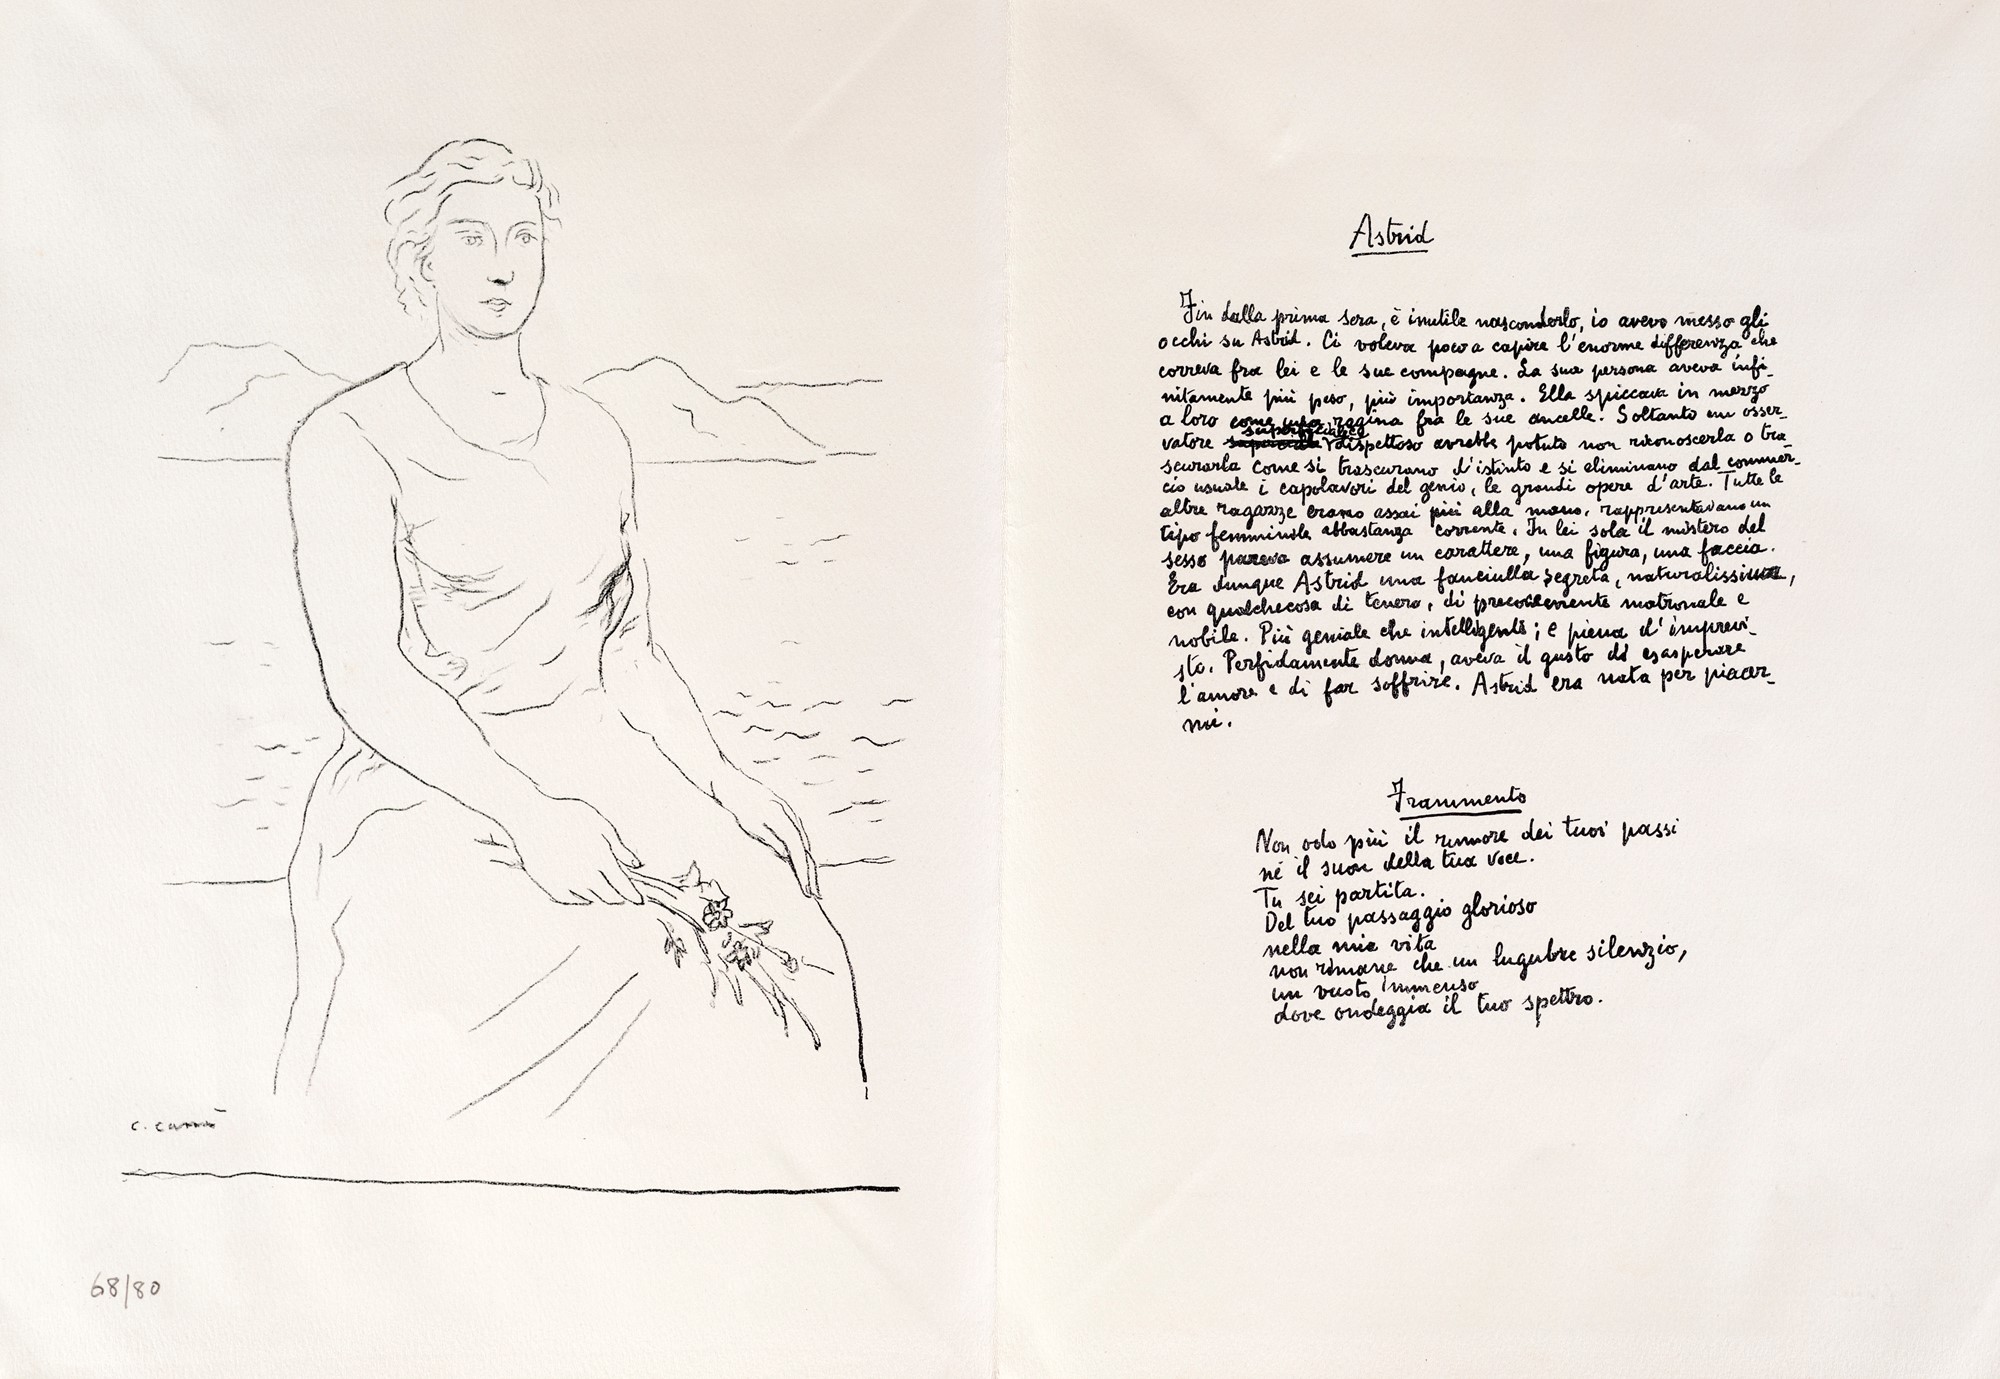 C. Carrà
68/80
Astrid
Fin dalla prima sera, è inutile nasconderlo, io avevo messo gli
occhi su Astrid. Ci voleva poco a capire l'enorme differenza che
correva fra lei e le sue compagne. La sua persona aveva infi_
nitamente più peso, più importanza. Ella spiccava in mezzo
a loro come una regina fra le sue ancelle. Soltanto un osser_
vatore dispettoso avrebbe potuto non riconoscerla o tra_
scurarla come si trascurano d'istinto e si eliminano dal commer_
cio usuale i capolavori del genio, le grandi opere d'arte. Tutte le
altre ragazze erano assai più alla mano, rappresentavano un
tipo femminile abbastanza corrente. In lei sola il mistero del
sesso pareva assumere un carattere, una figura, una faccia.
Era dunque Astrid una fanciulla segreta, naturalissima,
con qualchecosa di tenero, di precocemente matronale e
nobile. Più geniale che intelligente; e piena d'imprevi_
sto. Perfidamente donna, aveva il gusto di esasperare
l'amore e di far soffrire. Astrid era nata per piacer_
mi.
Frammento
Non odo più il rumore dei tuoi passi
né il suon della tua voce.
Tu sei partita.
Del tuo passaggio glorioso
nella mia vita
non rimane che un lugubre silenzio,
un vuoto immenso
dove ondeggia il tuo spettro.